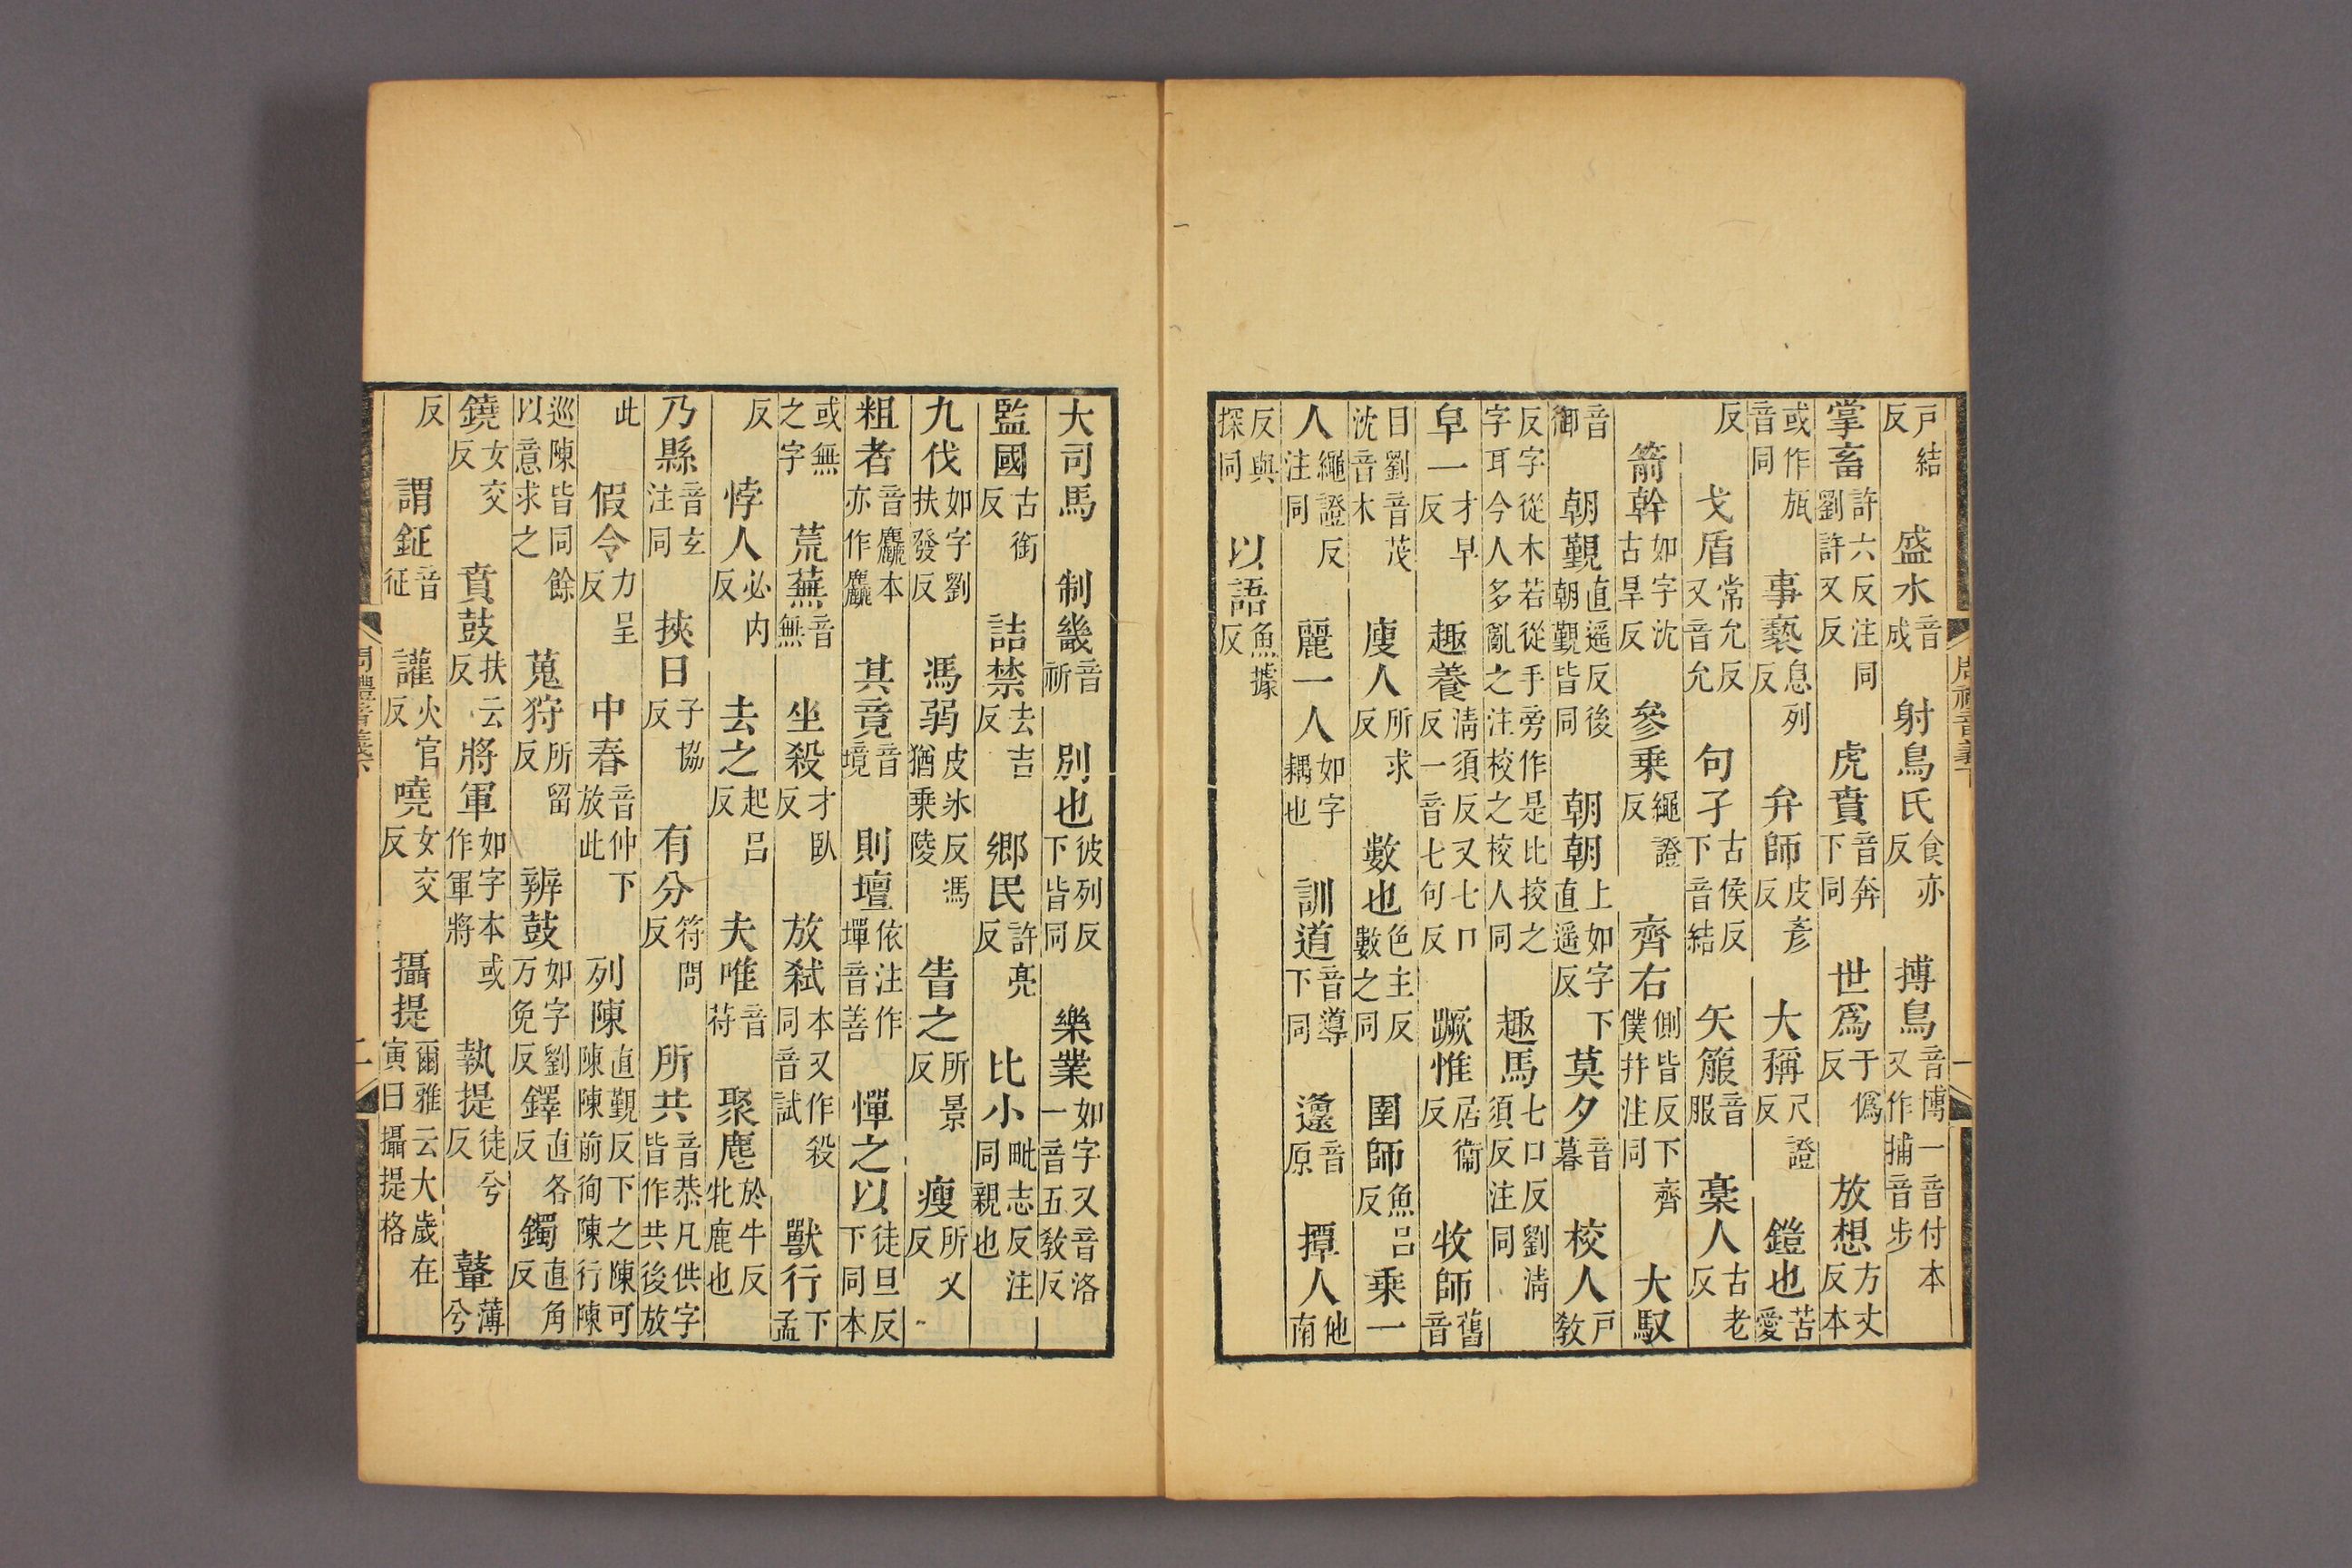 戸結反盛水音成射鳥氏食亦反搏鳥音博一音付本又作捕音步
掌畜許六反注同劉許又反虎賁音奔下同世爲于僞反放想方丈反本
或作瓬音同事褻息列反弁師皮彥反大稱尺證反鎧也苦愛
反戈盾常允反又音允句孑古侯反下音結矢箙音服稾人古老反
箭幹如字沈古旱反參乗繩證反齊右側皆反下齊僕幷注同大馭
音御朝覲直遥反後朝覲皆同朝朝上如字下直遥反莫夕音暮校人戸敎
反字從木若從手旁作是比挍之字耳今人多亂之注校之校人同趣馬七口反劉淸須反注同
皁一才早反趣養淸須反又七口反一音七句反蹶惟居衞反牧師舊音
目劉音茂沈音木廋人所求反數也色主反數之同圉師魚呂反乗一
人繩證反注同麗一人如字耦也訓道音導下同邍音原撢人他南
反與探同以語魚據反
大司馬制畿音祈別也彼列反下皆同樂業如字又音洛一音五敎反
監國古銜反詰禁去吉反鄉民許亮反比小毗志反注同親也
九伐如字劉扶發反馮弱皮氷反馮猶乗陵眚之所景反瘦所又反
粗者音麤本亦作麤其竟音境則壇依注作墠音善憚之以徒旦反下同本
或無之字荒蕪音無坐殺才臥反放弒本又作殺同音試獸行下孟
反悖人必内反去之起呂反夫唯音符聚麀於牛反牝鹿也
乃縣音玄注同挾日子協反有分符問反所共音恭凡供字皆作共後放
此假令力呈反中春音仲下放此列陳直覲反下之陳可陳陳前徇陳行陳
巡陳皆同餘以意求之蒐狩所留反辨鼓如字劉万免反鐸直各反鐲直角反
鐃女交反賁鼓扶云反將軍如字本或作軍將執提徒兮反鼙薄兮
反謂鉦音征讙火官反嘵女交反攝提爾雅云大歲在寅曰攝提格